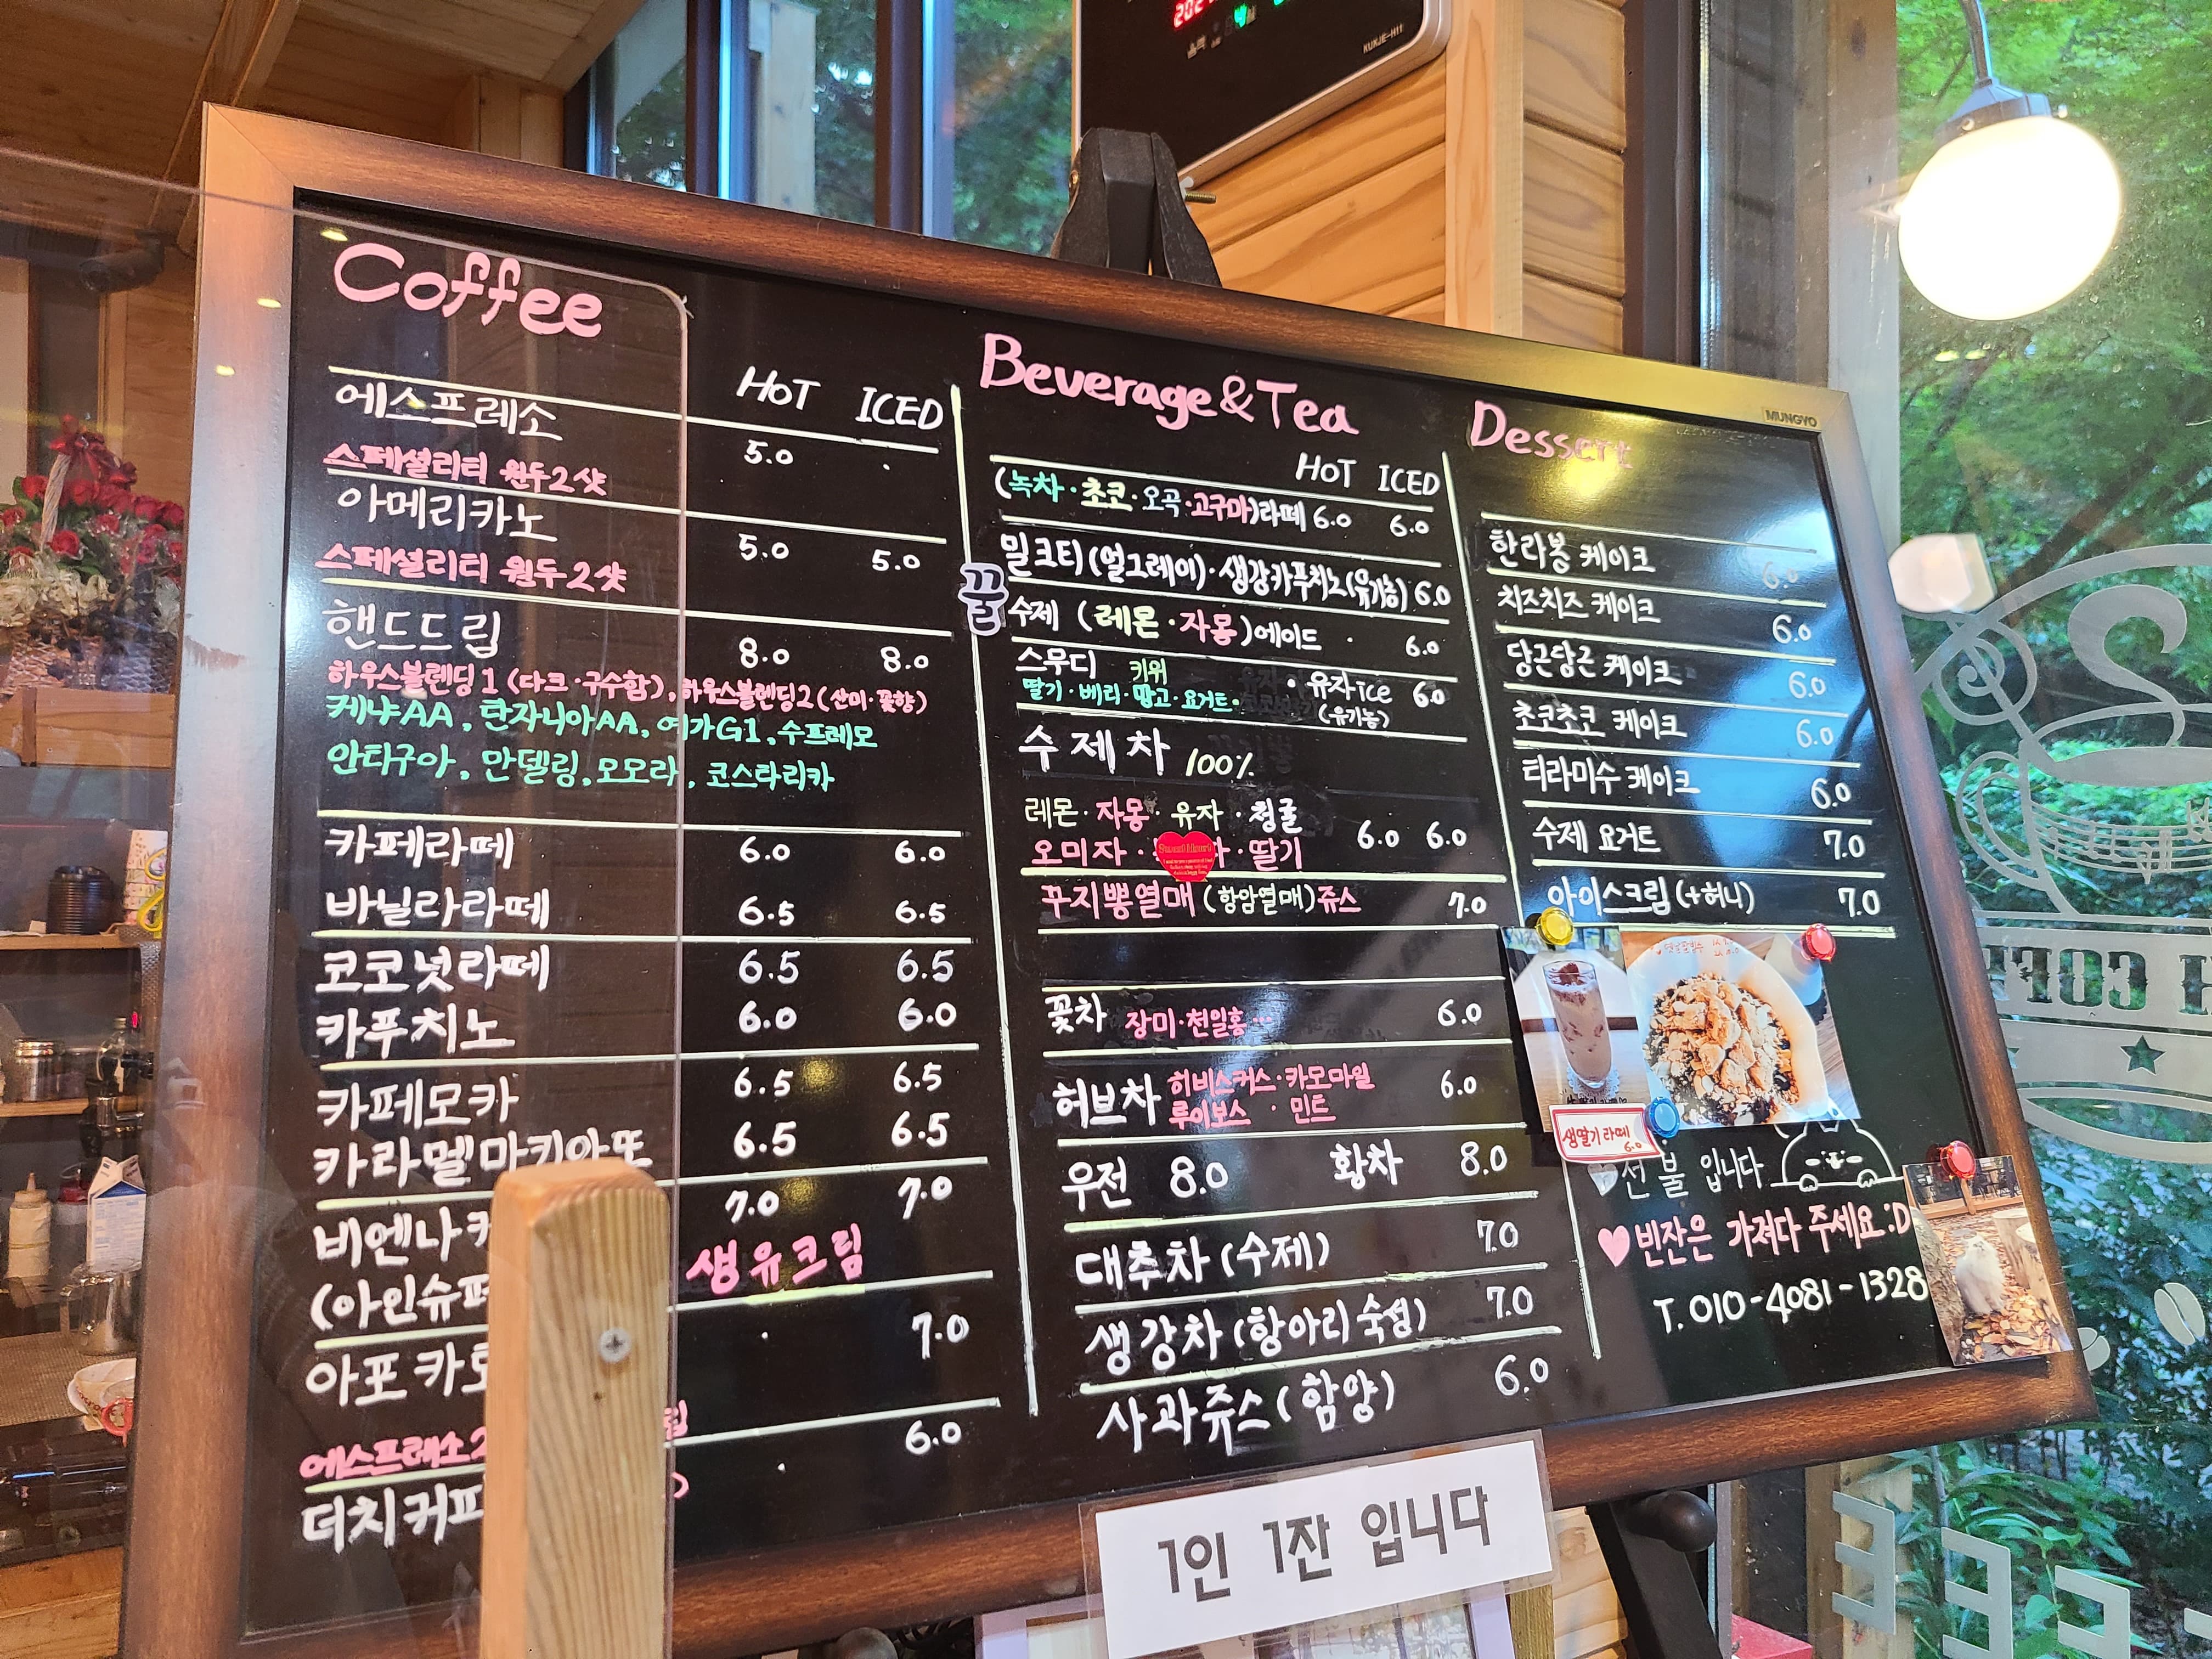 Coffee
HOT ICED
에스프레소 5.0 .
스페셜리티 원두2샷
아메리카노 5.0 5.0
스페셜리티 원두2샷
핸드드립 8.0 8.0
하우스블렌딩1 (다크·구수함), 하우스블렌딩2 (산미·꽃향)
케냐AA, 탄자니아AA, 여가G1, 수프레모
안티구아, 만델링, 모모라, 코스타리카
카페라떼 6.0 6.0
바닐라라떼 6.5 6.5
코코넛라떼 6.5 6.5
카푸치노 6.0 6.0
카페모카 6.5 6.5
카라멜마키아또 6.5 6.5
비엔나 7.0 7.0
(아인슈페 생유크림
아포카 . 7.0
에스프레소2
더치커피 . 6.0
Beverage&Tea
HOT ICED
(녹차·초코·오곡·고구마)라떼 6.0 6.0
밀크티(얼그레이)·생강카푸치노(유기농) 6.0
꿀
수제 (레몬·자몽)에이드 · 6.0
스무디 키위
딸기·베리·망고·요거트· · 유자ice 6.0
(유기농)
수제차 100%
레몬·자몽·유자·청귤
오미자· ·딸기 6.0 6.0
꾸지뽕열매(항암열매)쥬스 7.0
꽃차 장미·천일홍... 6.0
허브차 히비스커스·카모마일 6.0
루이보스 · 민트
우전 8.0 황차 8.0
대추차(수제) 7.0
생강차(항아리숙성) 7.0
사과쥬스(함양) 6.0
Dessert
한라봉 케이크 6.0
치즈치즈 케이크 6.0
당근당근 케이크 6.0
초코초코 케이크 6.0
티라미수 케이크 6.0
수제 요거트 7.0
아이스크림(+허니) 7.0
생딸기라떼
6.0
선불입니다
빈잔은 가져다 주세요 :D
T. 010-4081-1328
MUNGYO
KUKJE-H11
1인 1잔 입니다